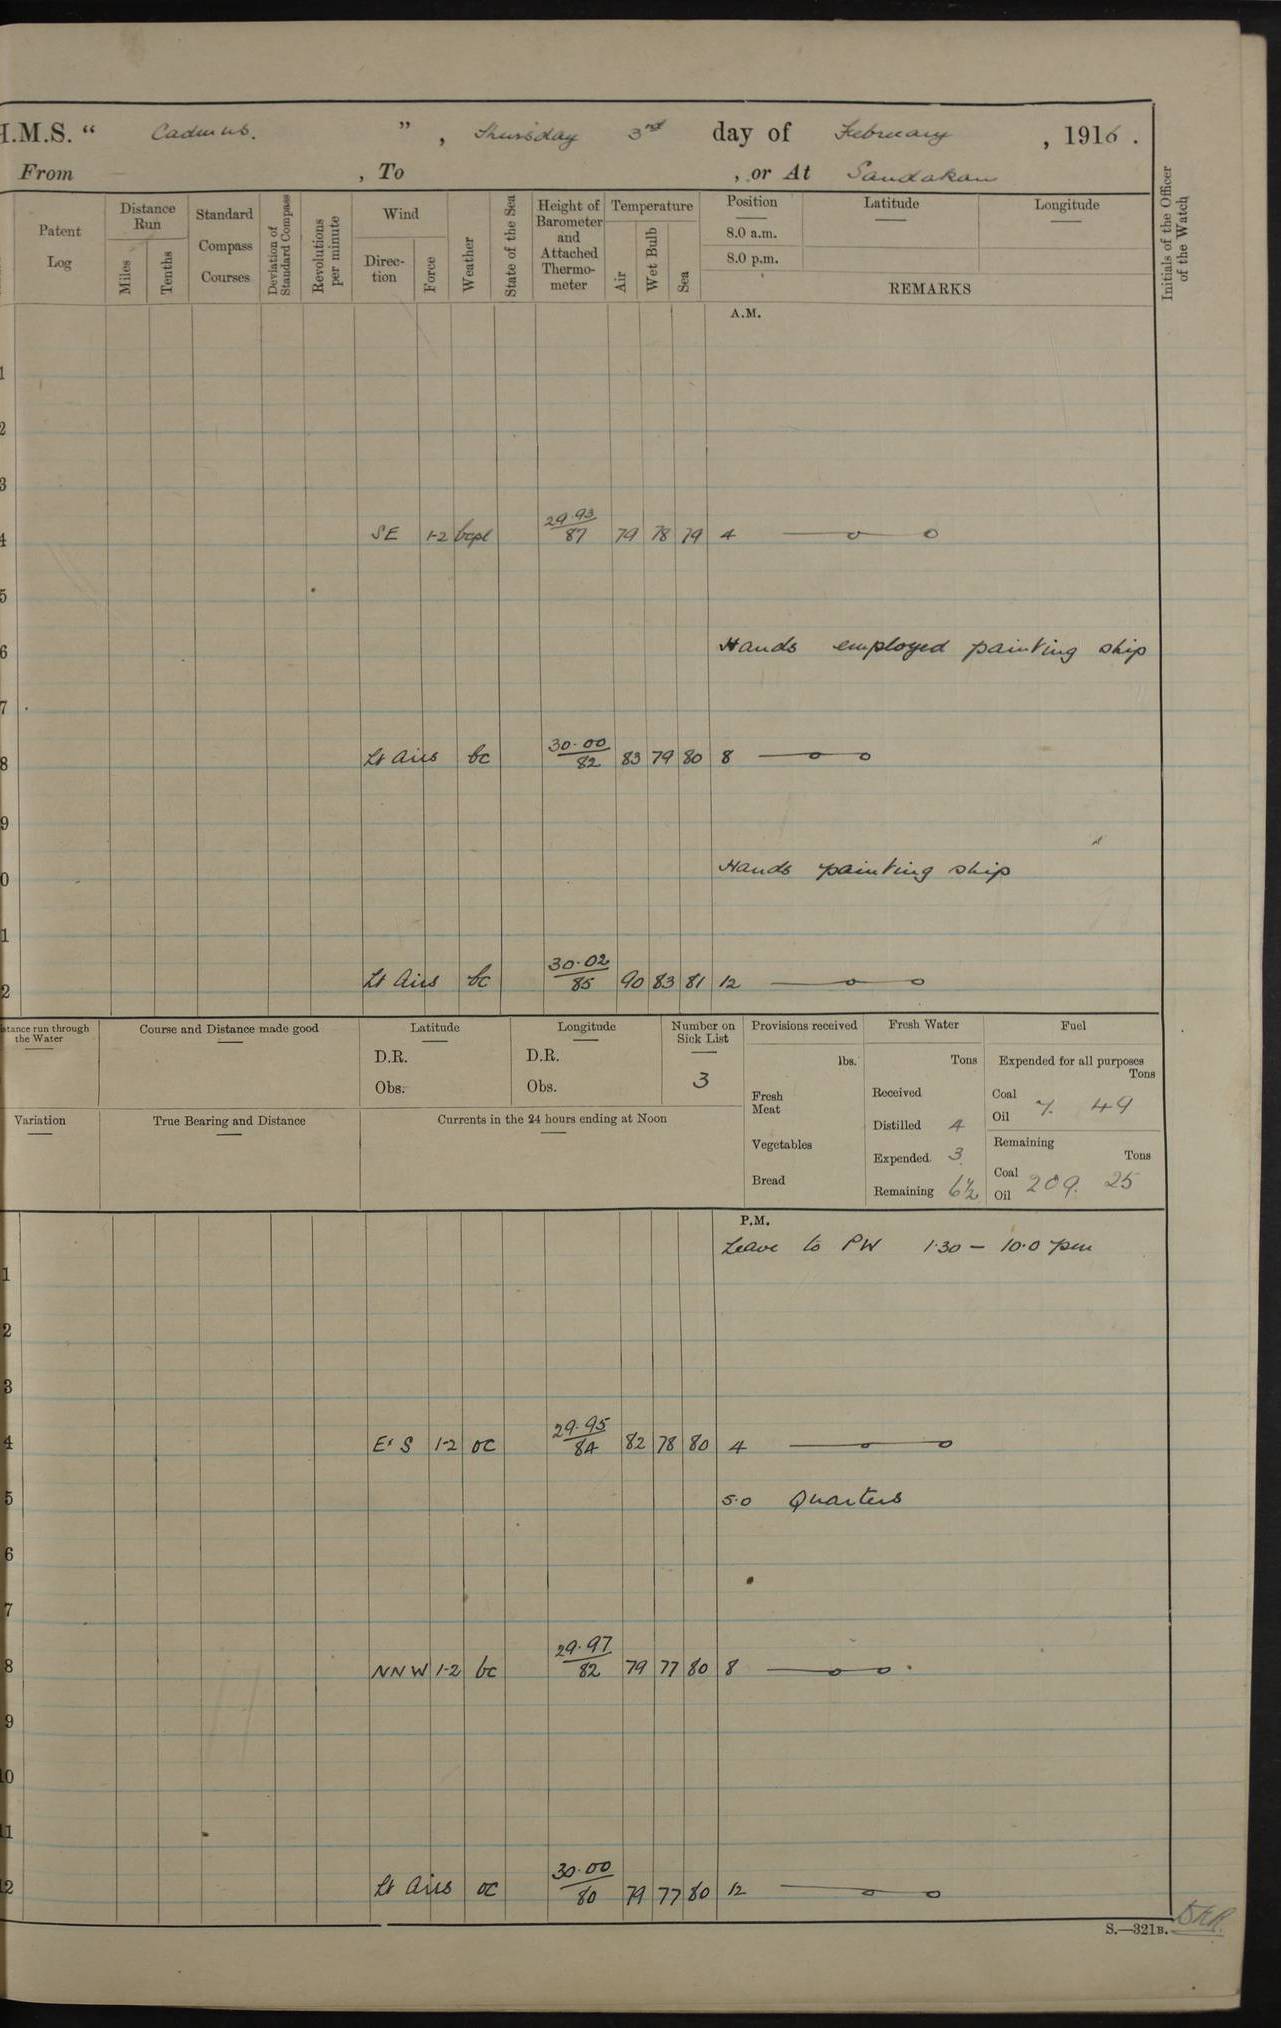 H.M.S. “ Cadmus. ” , Thursday 3rd day of February , 1916 .
From , To , or At Sandakan
Patent Log
Distance Run
Miles
Tenths
Standard Compass Courses
Deviation of Standard Compass
Revolutions per minute
Wind
Direc-tion
Force
Weather
State of the Sea
Height of Barometer and Attached Thermo-meter
Temperature
Air
Wet Bulb
Sea
Position
8.0 a.m.
8.0 p.m.
Latitude
Longitude
REMARKS
Initials of the Officer of the Watch
A.M.
1
2
3
4 SE 1-2 bcpl 29.93/87 79 78 79 4
5
6 Hands employed painting ship
7
8 Lt Airs bc 30.00/82 83 79 80 8
9
0 Hands painting ship
1
2 Lt Airs bc 30.02/85 90 83 81 12
stance run through the Water
Course and Distance made good
Latitude
D.R.
Obs.
Longitude
D.R.
Obs.
Number on Sick List
3
Provisions received
lbs.
Fresh Meat
Vegetables
Bread
Fresh Water
Tons
Received
Distilled 4
Expended. 3
Remaining 6½
Fuel
Expended for all purposes
Tons
Coal
Oil 7. 49
Remaining
Tons
Coal
Oil 209. 25
Variation
True Bearing and Distance
Currents in the 24 hours ending at Noon
P.M.
Leave to PW 1.30 - 10.0 pm
1
2
3
4 E'S 1-2 oc 29.95/84 82 78 80 4
5 5.0 Quarters
6
7
8 NNW 1-2 bc 29.97/82 79 77 80 8
9
10
11
12 Lt Airs oc 30.00/80 79 77 80 12
S.—321B.